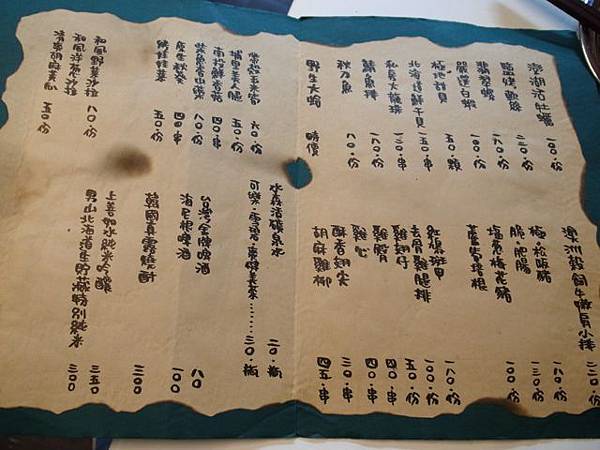 澎湖活牡蠣 一〇〇.份
鹽烤軟絲 二二〇.份
翡翠螺 一〇〇.份
胭脂白蝦 一六〇.份
極地甜貝 五〇.顆
北海道鮮干貝 一五〇.串
私房大龍珠 一二〇.串
鯖魚排 一六〇.份
秋刀魚 八〇.份
野生大蛤 時價
澳洲穀飼牛嫩肩小排 二二〇.份
極.松阪豬 一八〇.份
脆.肥腸 一二〇.份
塩蔥梅花豬 一六〇.份
蘆筍培根
紅糟斑甲 一八〇.份
去骨雞腿排 一〇〇.份
雞翅仔 五〇.份
雞腎 四〇.串
雞心 四〇.串
酥香翅尖 三〇.串
胡麻雞柳 四五.串
帶殼玉米筍 六〇.份
埔里美人腿 五〇.份
南投鮮香菇 四〇.串
柴魚香山藥 八〇.份
產生秋葵 四〇.串
綉娃菜 五〇.份
和風野菜沙拉 八〇.份
和風洋蔥沙拉
清爽胡麻黃瓜 五〇.份
水森活礦泉水 二〇.瓶
可樂.雪碧.果健美茶……… 三〇.瓶
台灣金牌啤酒 八〇
海尼根啤酒 一〇〇
韓國真露燒酎 二〇〇
上善如水純米吟釀 三五〇
男山北海道生貯藏特別純米 三〇〇